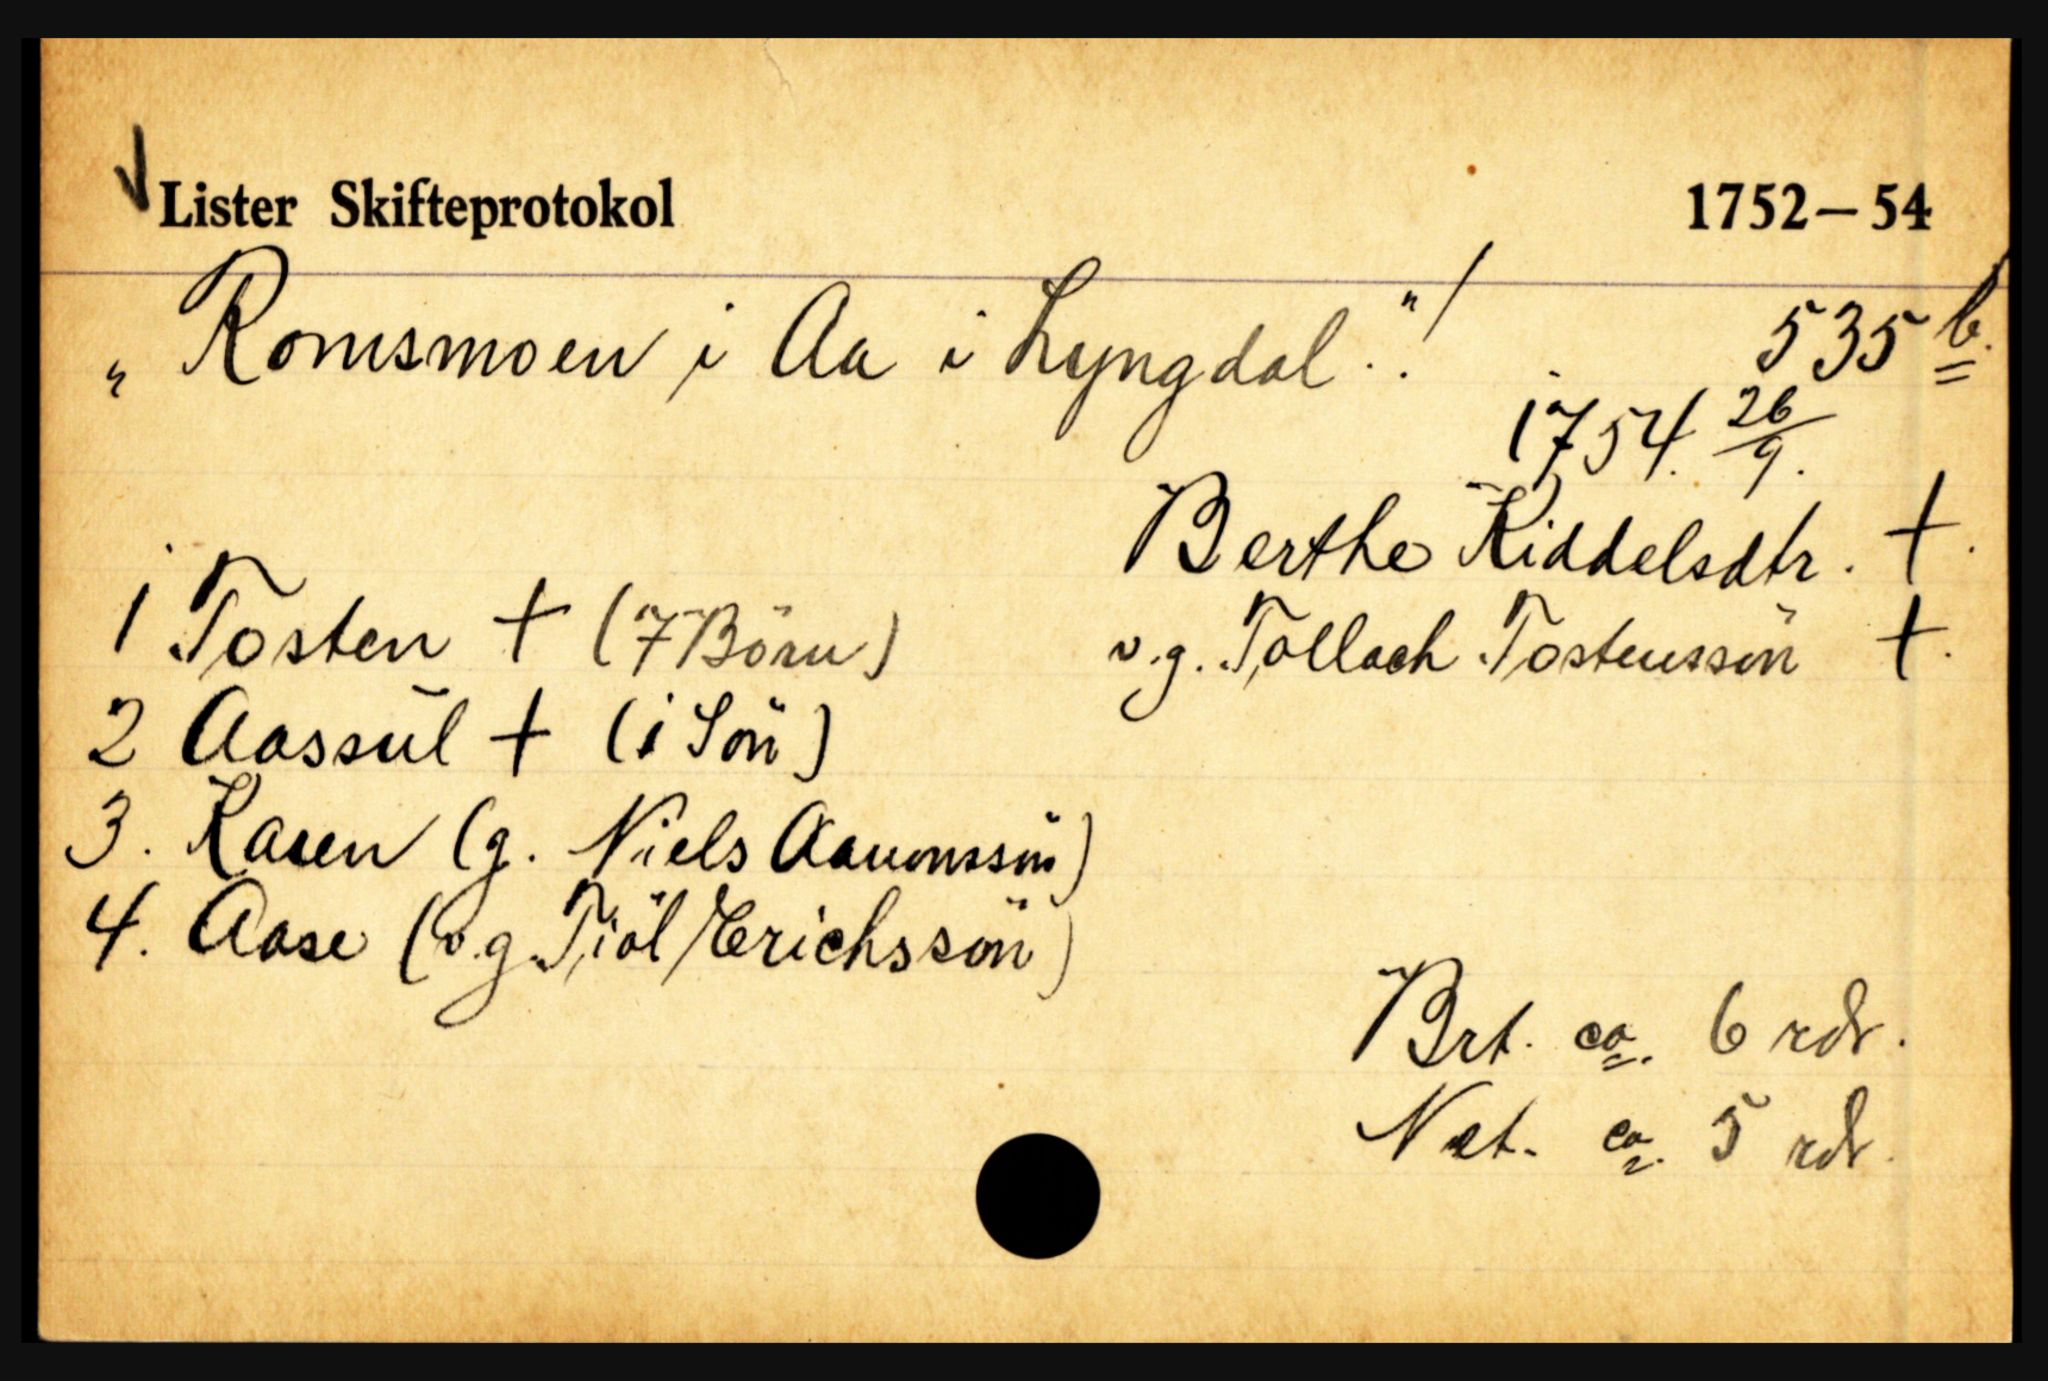 Lister Skifteprotokol 1752—54
„Romsmoen i Aa i Lyngdal."!
535 b.
1754. 26/9.
Berthe Kiddelsdtr. †.
v.g. Tollach Tostenssön †.
1 Tosten † (7 Börn)
2 Aassūl † (1 Sön)
3. Karen (g. Niels Aanonssön)
4. Aase (v.g. Tjöl Erichssön)
Brt. ca. 6 rdr.
Net. ca. 5 rdr.